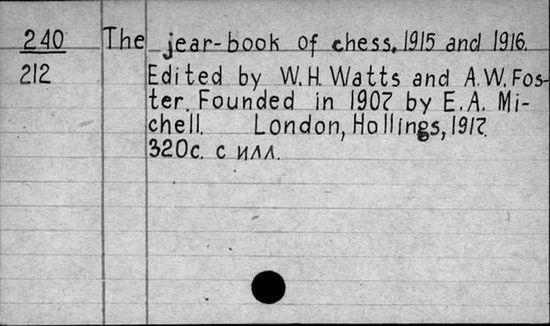 240 The jear-book of chess, 1915 and 1916.
212 Edited by W.H. Watts and A.W. Fos-
ter. Founded in 1907 by E.A. Mi-
chell. London, Hollings, 1917.
320с. с илл.